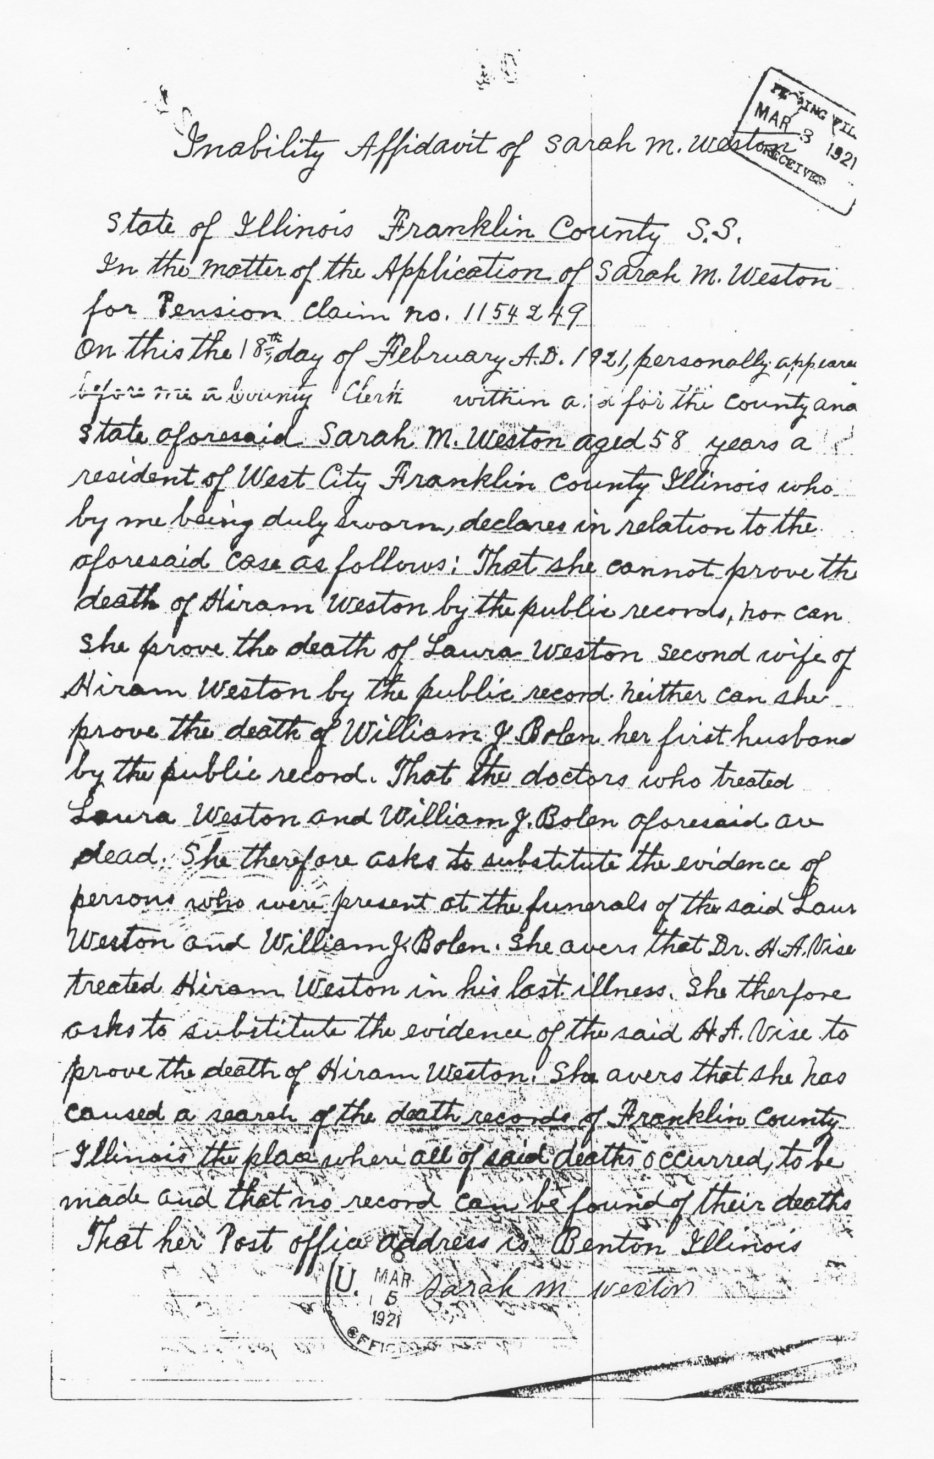 Inability Affidavit of Sarah M. Weston
MAR 3 1921
RECEIVED
State of Illinois Franklin County S.S.
In the matter of the Application of Sarah M. Weston
for Pension Claim no. 1154249
On this the 18th day of February A.D. 1921, personally appeare
before me a County Clerk within a d for the County and
State aforesaid Sarah M. Weston aged 58 years a
resident of West City Franklin County Illinois who
by me being duly sworn, declares in relation to the
aforesaid case as follows: That she cannot prove the
death of Hiram Weston by the public records, nor can
she prove the death of Laura Weston second wife of
Hiram Weston by the public record neither can she
prove the death of William J. Bolen her first husband
by the public record. That the doctors who treated
Laura Weston and William J. Bolen aforesaid are
dead. She therefore asks to substitute the evidence of
persons who were present at the funerals of the said Laur
Weston and William J. Bolen. She avers that Dr. H.A. Vise
treated Hiram Weston in his last illness. She therfore
asks to substitute the evidence of the said H.A. Vise to
prove the death of Hiram Weston. She avers that she has
caused a search of the death records of Franklin County
Illinois the place where all of said deaths occurred, to be
made and that no record can be found of their deaths
That her Post office address is Benton Illinois
Sarah M Weston
U.
MAR
5
1921
OFFICE